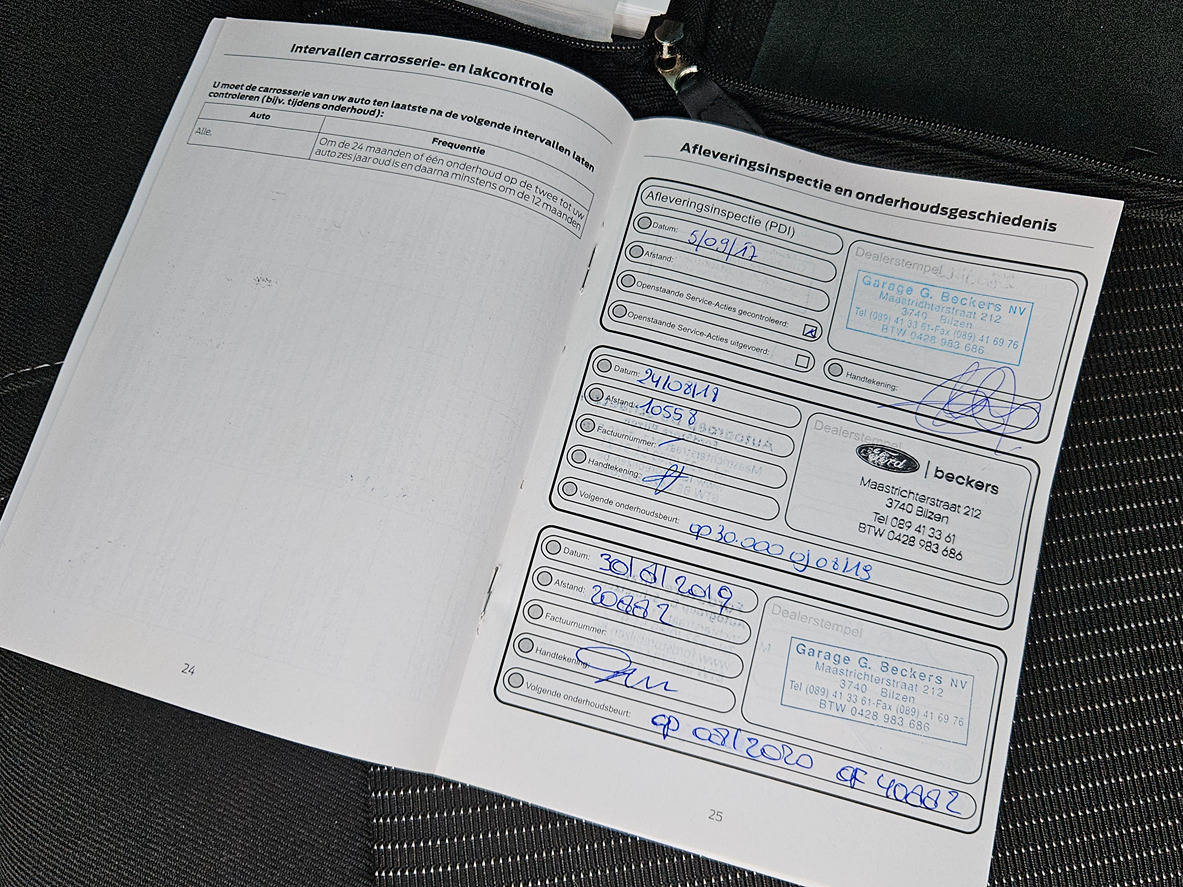 Intervallen carrosserie- en lakcontrole
U moet de carrosserie van uw auto ten laatste na de volgende intervallen laten
controleren (bijv. tijdens onderhoud):
Auto
Frequentie
Alle.
Om de 24 maanden of één onderhoud op de twee tot uw
auto zes jaar oud is en daarna minstens om de 12 maanden
24
Afleveringsinspectie en onderhoudsgeschiedenis
Afleveringsinspectie (PDI)
Datum: 5/09/17
Afstand:
Openstaande Service-Acties gecontroleerd:
Openstaande Service-Acties uitgevoerd:
Dealerstempel
Garage G. Beckers NV
Maastrichterstraat 212
3740 Bilzen
Tel (089) 41 33 61-Fax (089) 41 69 76
BTW 0428 983 686
Handtekening:
Datum: 24/08/18
Afstand: 10558
Factuurnummer:
Handtekening:
Volgende onderhoudsbeurt: op 30.000 of 08/19
Dealerstempel
Ford | beckers
Maastrichterstraat 212
3740 Bilzen
Tel 089 41 33 61
BTW 0428 983 686
Datum: 30/8/2019
Afstand: 20882
Factuurnummer:
Handtekening:
Volgende onderhoudsbeurt: op 08/2020 of 40882
Dealerstempel
Garage G. Beckers NV
Maastrichterstraat 212
3740 Bilzen
Tel (089) 41 33 61-Fax (089) 41 69 76
BTW 0428 983 686
25